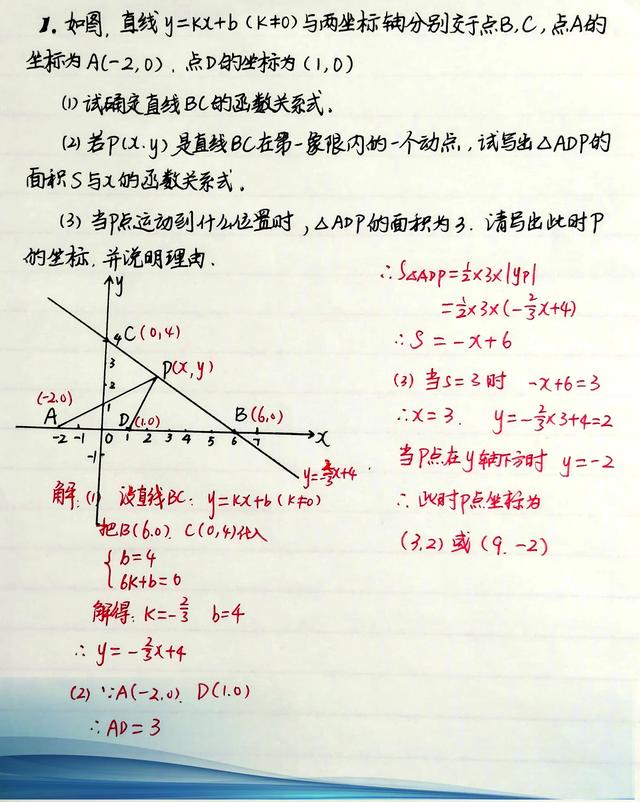 1. 如图, 直线 y=kx+b (k≠0) 与两坐标轴分别交于点B, C, 点A的
坐标为 A(-2,0), 点D的坐标为 (1,0)
(1) 试确定直线BC的函数关系式.
(2) 若P(x.y) 是直线BC在第一象限内的一个动点, 试写出△ADP的
面积S与x的函数关系式.
(3) 当P点运动到什么位置时, △ADP的面积为3. 请写出此时P
的坐标, 并说明理由.
y
4 C(0,4)
3
P(x,y)
2
(-2,0)
1
A
D (1,0)
B(6,0)
-2 -1 0 1 2 3 4 5 6 7 x
-1
y=-2/3x+4
解: (1) 设直线BC: y=kx+b (k≠0)
把B(6.0). C(0,4)代入
{ b=4
6k+b=0
解得: k=-2/3 b=4
∴ y=-2/3x+4
(2) ∵A(-2,0). D(1.0)
∴AD=3
∴S△ADP=1/2×3×|yP|
=1/2×3×(-2/3x+4)
∴S=-x+6
(3) 当s=3时 -x+6=3
∴x=3. y=-2/3×3+4=2
当P点在y轴下方时 y=-2
∴此时P点坐标为
(3,2) 或 (9.-2)